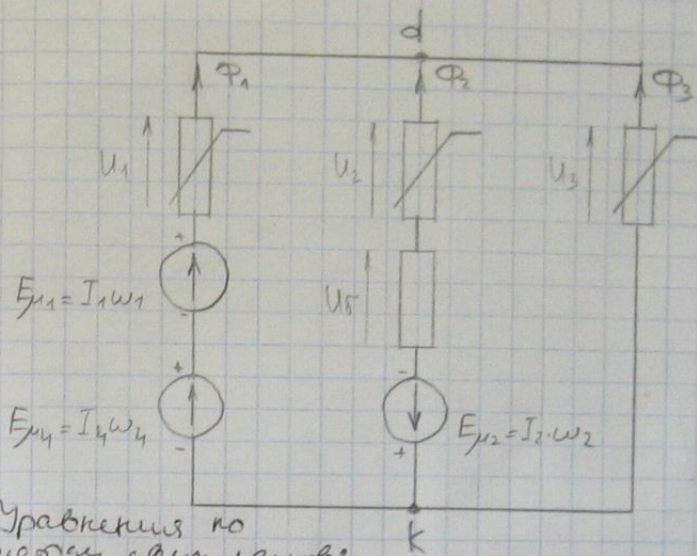 d
Φ₁
Φ₂
Φ₃
U₁
U₂
U₃
+
Eμ₁=I₁ω₁
-
Uδ
+
-
Eμ₄=I₄ω₄
Eμ₂=I₂·ω₂
-
+
Уравнения по
k